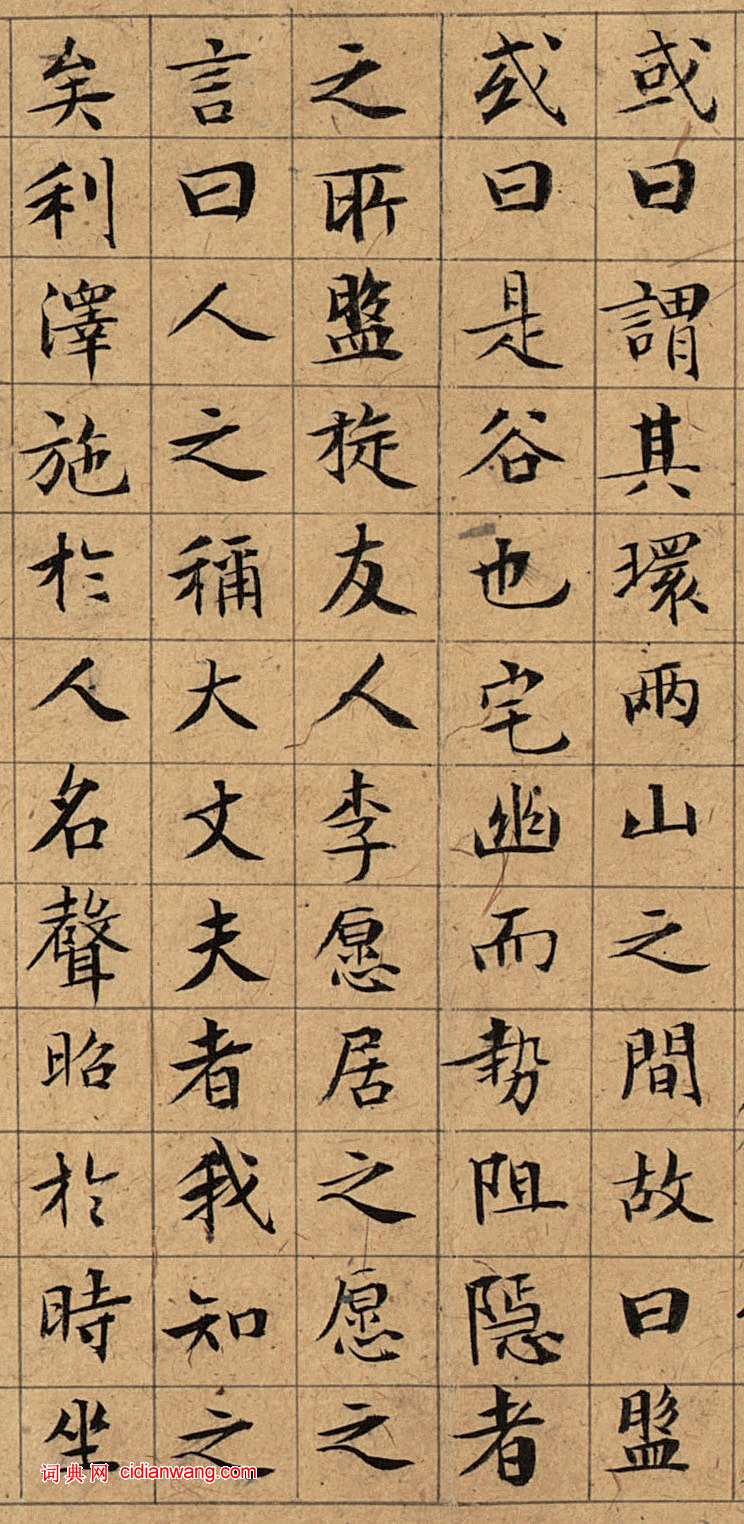 或曰謂其環兩山之間故曰盤
或曰是谷也宅幽而勢阻隱者
之所盤旋友人李愿居之愿之
言曰人之稱大丈夫者我知之
矣利澤施於人名聲昭於時坐
词典网 cidianwang.com